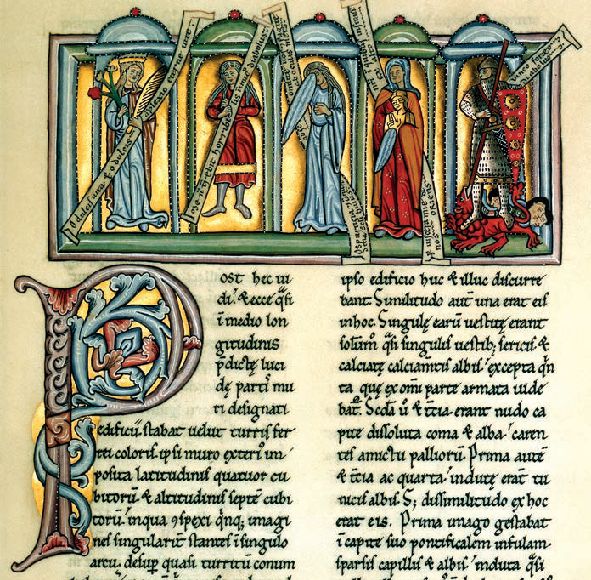 Post hec ui
di. & ecce q̄si
ı̄ medio lon
gitudinis
p̄dictę luci
dę partis mu
ri designati
edificii. stabat uelut turris fer
rei coloris. ipsi muro exteri' im
posita latitudinis quatuor cu
bitorū. & altitudinis septē cubi
torū. in qua ꝯspexi qnq; imagi
nes singularit̄ stantes ī singulo
arcu. desup̄ quasi turritū conum
ipso edificio huc & illuc discurre
bant. Similitudo aut̄ una erat eis
in hoc. Singulę earū uestitę erant
q̄si singulis uestib; sericis &
calciatę calciamtis albis. excepta qn
ta que ex omi parte armata uide
bat̄. Scda ū & t̄cia erant nudo ca
pite dissoluta coma & alba. caren
tes amictu palliorū. Prima autē
& t̄cia ac quarta indutę erat tu
nicis albis S; dissimilitudo ex hoc
erat eis. Prima imago gestabat
ī capite suo pontificalem infulam
sparsis capillis & albis. induta q̄si